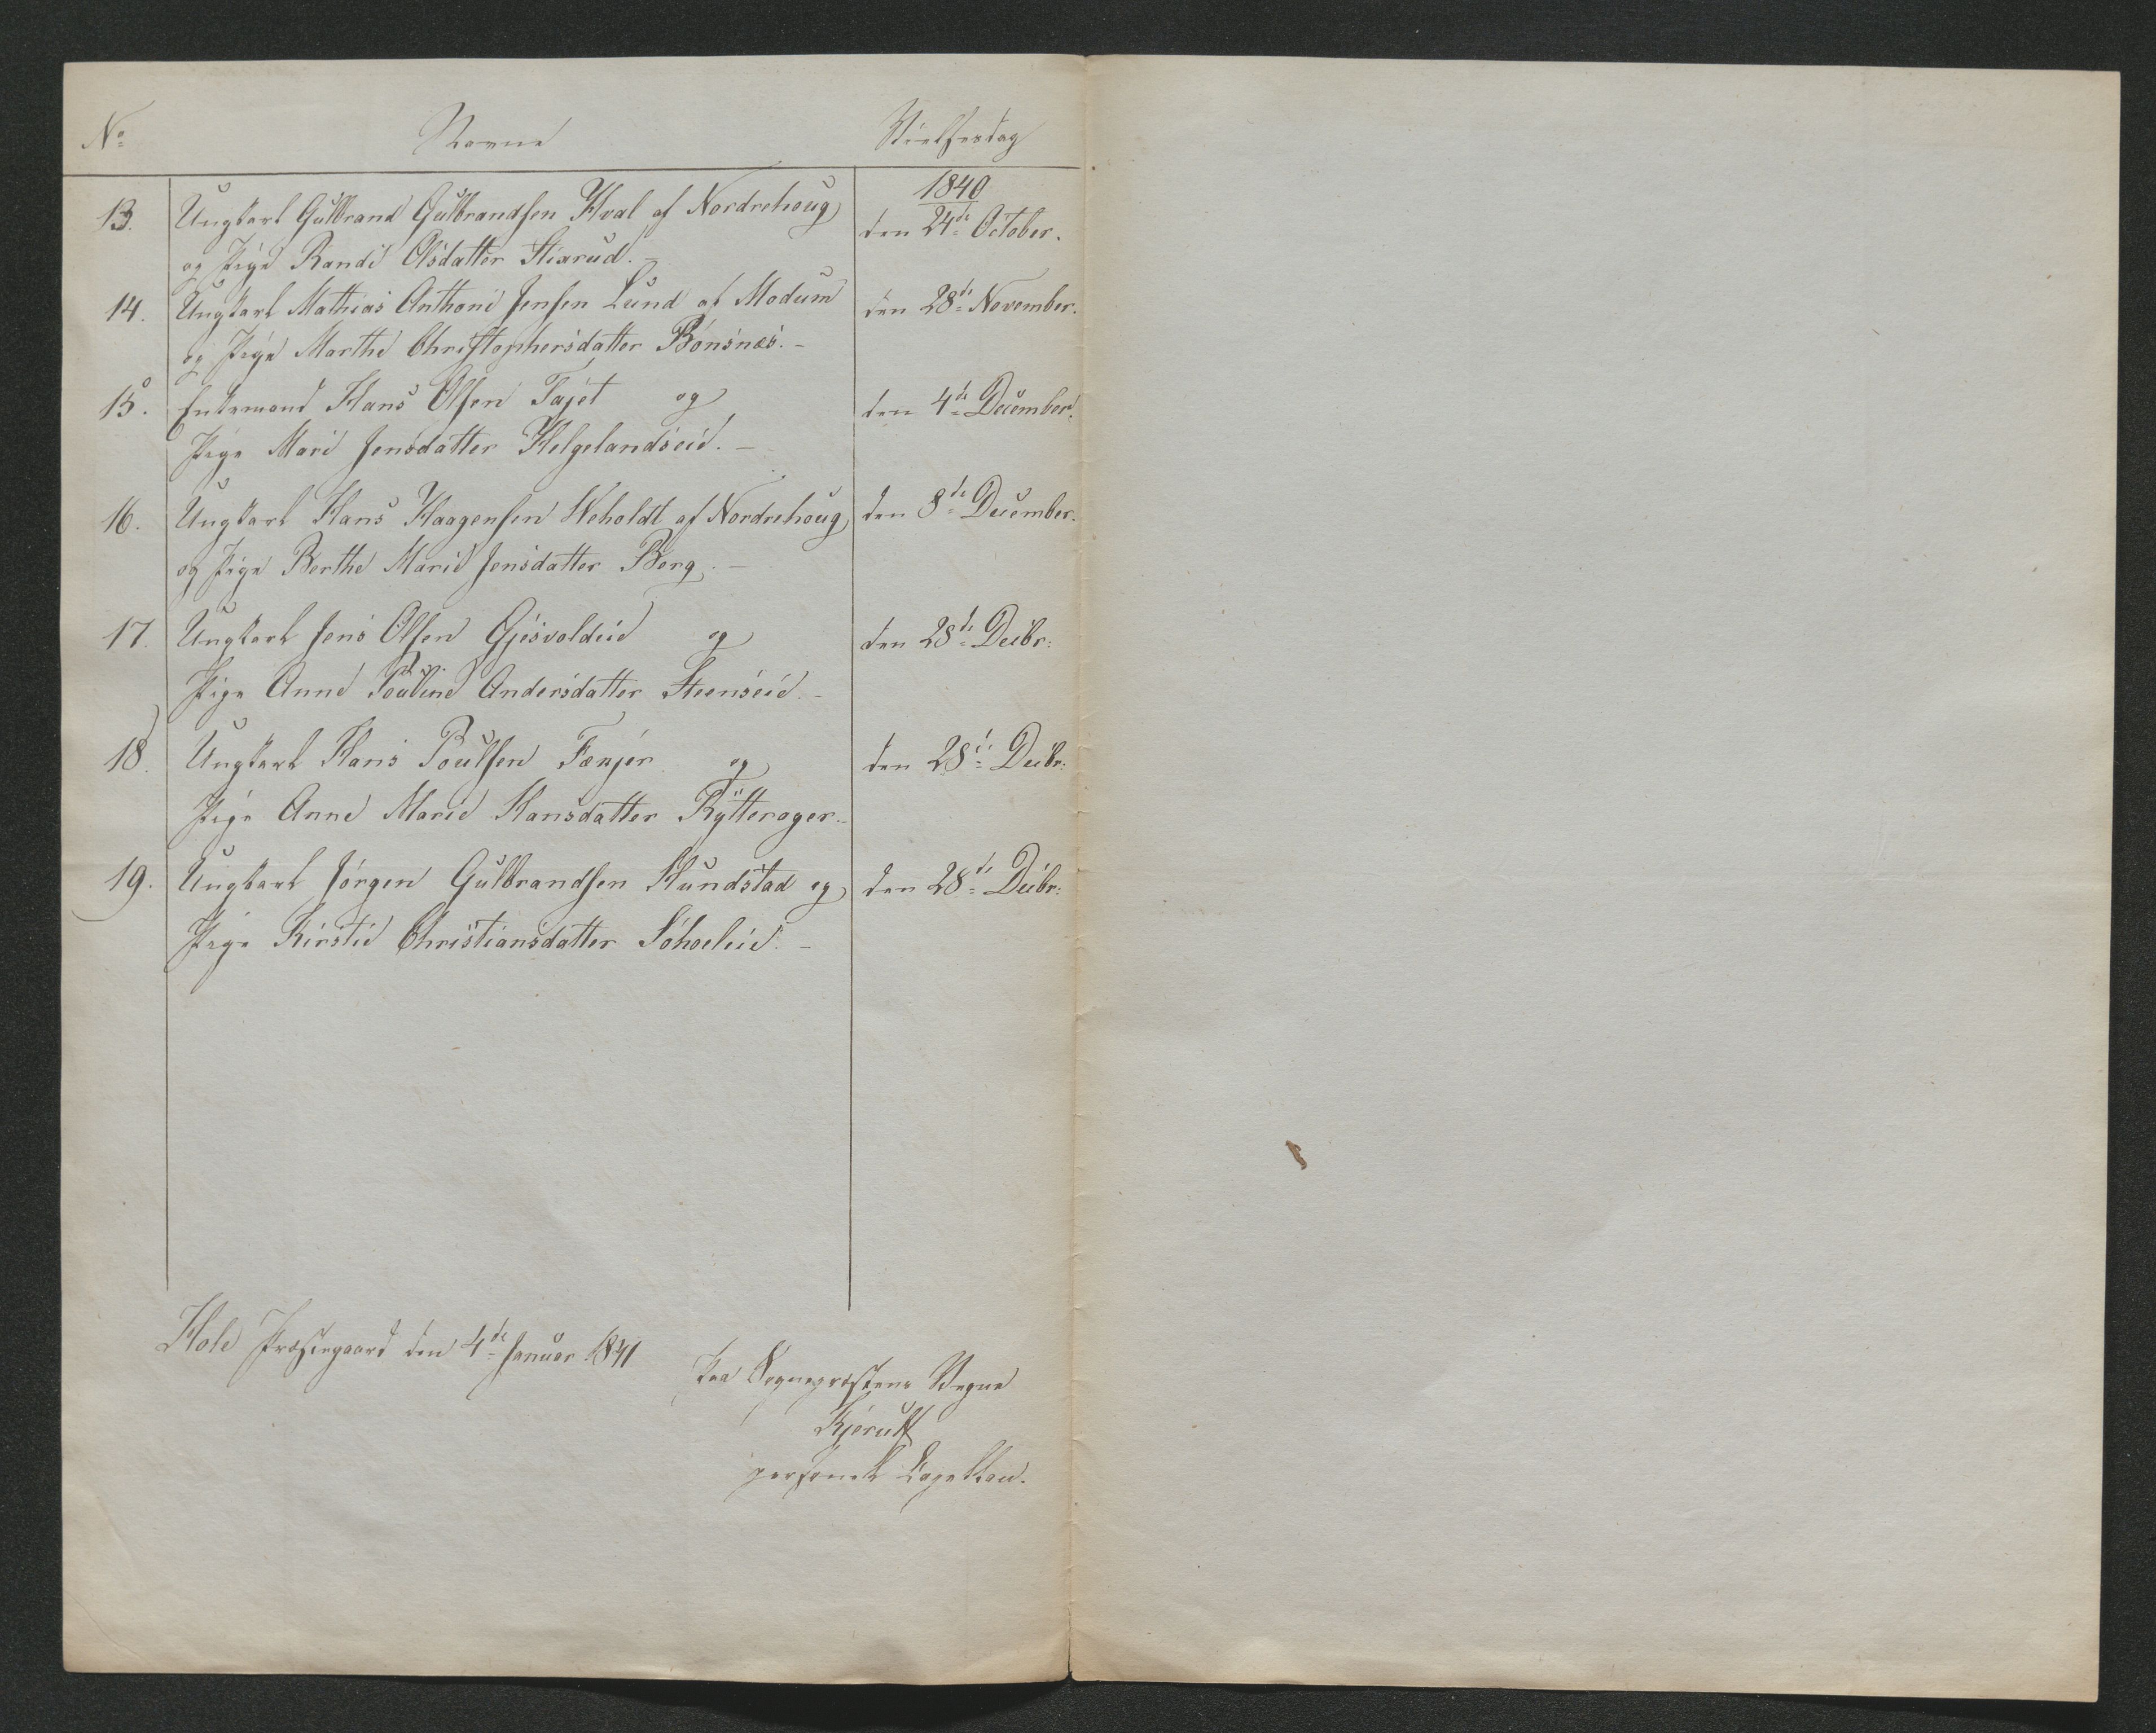 No Navne Vielsesdag
1840
13. Ungkarl Gulbrand Gulbrandsen Hval af Nordrehoug den 24de October.
og Pige Randi Olsdatter Stixrud. -
14. Ungkarl Mathias Anthoni Jensen Lund af Modum den 28de November.
og Pige Marthe Christophersdatter Bönsnæs. -
15. Enkemand Hans Olsen Fajet og den 4de December.
Pige Mari Jensdatter Helgelandseie. -
16. Ungkarl Hans Haagensen Weholdt af Nordrehoug den 8de December.
og Pige Berthe Marie Jensdatter Berg. -
17. Ungkarl Jens Olsen Gjesvoldeie og den 28de Decbr:
Pige Anne Pouline Andersdatter Steenseie. -
18. Ungkarl Hans Poulsen Fænjer og den 28de Decbr:
Pige Anne Marie Hansdatter Rÿtterager. -
19. Ungkarl Jörgen Gulbrandsen Hundstad og den 28de Decbr:
Pige Kirstie Christiansdatter Söhoeleie. -
Hole Præstegaard den 4de Januar 1841
Paa Sognepræstens Vegne
Kjerulf
personel Capellan.